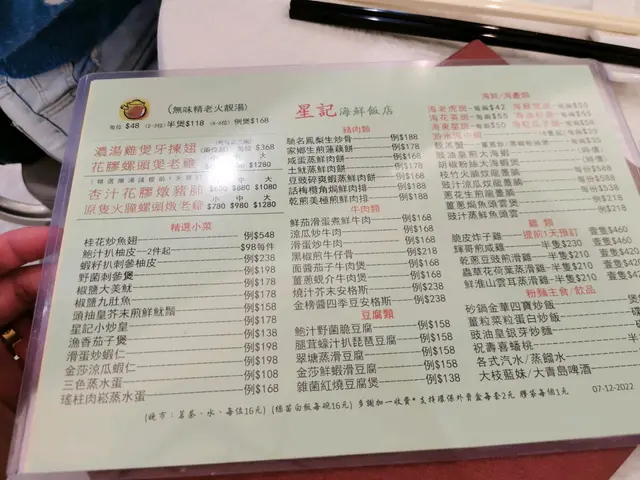 (無味精老火靚湯)
每位 $48 (2-3位)半煲$118 (4-6位) 例煲$168
濃湯雞煲牙揀翅 $368
花膠螺頭煲老雞 $1280
杏汁花膠燉豬肺 $680 $880 $1080
原隻火朣螺頭燉老雞 $780 $980 $1280
精選小菜
桂花炒魚翅 例$548
鮑汁扒柚皮 2件起 $98每件
蝦籽扒刺參柚皮 例$238
野菌刺參煲 例$198
椒鹽大美魷 例$178
椒鹽九肚魚 例$158
頭抽皇芥末煎鮮魷鬚 例$158
星記小炒皇 例$178
漁香茄子煲 例$138
滑蛋炒蝦仁 例$198
金莎涼瓜蝦仁 例$198
三色蒸水蛋 例$108
瑤柱肉崧蒸水蛋 例$168
星記海鮮飯店
豬肉類
馳名鳳梨生炒骨 例$188
家鄉生煎蓮藕餅 例$168
咸蛋蒸鮮肉餅 例$168
土魷蒸鮮肉餅 例$168
豆豉碎爽蝦蒸鮮肉餅 例$168
話梅欖角焗鮮肉排 例$188
乾煎美極煎鮮肉排 例$188
牛肉類
鮮茄滑蛋煮鮮牛肉 例$168
涼瓜炒牛肉 例$168
滑蛋炒牛肉 例$168
黑椒煎牛仔骨 例$218
面醬茄子牛肉煲 例$168
薑蔥蜆介牛肉煲 例$168
燒汁芥末安格斯 例$238
金榜醬四季豆安格斯 例$238
豆腐類
鮑汁野菌脆豆腐 例$158
腿茸蠔汁扒琵琶豆腐 例$158
翠塘蒸滑豆腐 例$158
金莎鮮蝦滑豆腐 例$158
雜菌紅燒豆腐煲 例$138
海鮮/海產類
海老虎斑 $42
海花英斑 $55
海東星斑 $50
豉油皇煎大海蝦
胡椒粉絲大海蝦
枝竹火腩炆龍躉
豉汁涼瓜炆龍躉 $538
蔥花生煎龍躉 $198
薑蔥焗魚頭雲煲 例$218
豉汁蒸鮮魚頭雲
雞類
脆皮炸子雞 提前1天預訂 壹隻$460
輝哥煎咸雞 半隻$230 壹隻$460
乾蔥豆豉煎滑雞 半隻$210 壹隻$420
蟲草花荷葉蒸滑雞 半隻$210 壹隻$420
鮮淮山雲耳蒸滑雞 半隻$210 壹隻$420
粉麵主食/飲品
砂鍋金華四寶炒飯
薑粒菜粒蛋白炒飯
豉油皇銀芽炒麵
祝壽喜蟠桃
各式汽水/蒸餾水
大枝藍妹/大青島啤酒
(晚市：茗茶、水、每位16元) (絲苗白飯每碗16元) 多謝加一收費* 支持環保外賣盒每套2元 膠袋每個1元 07-12-2022